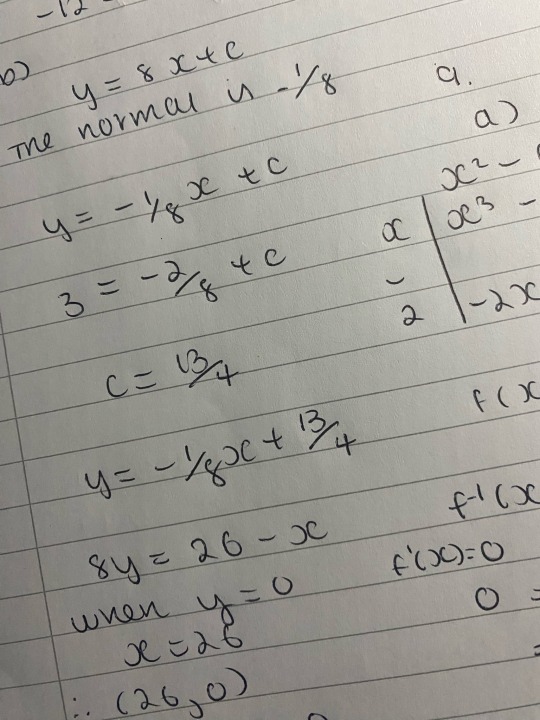 -12
b)
y = 8x+c
The normal is -1/8
y = -1/8x + c
3 = -2/8 + c
c = 13/4
y = -1/8x + 13/4
8y = 26 - x
when y = 0
x = 26
∴ (26,0)
9.
a)
x² -
x | x³ -
-
2 | -2x
f(x
f⁻¹(x
f'(x)=0
0 =
=